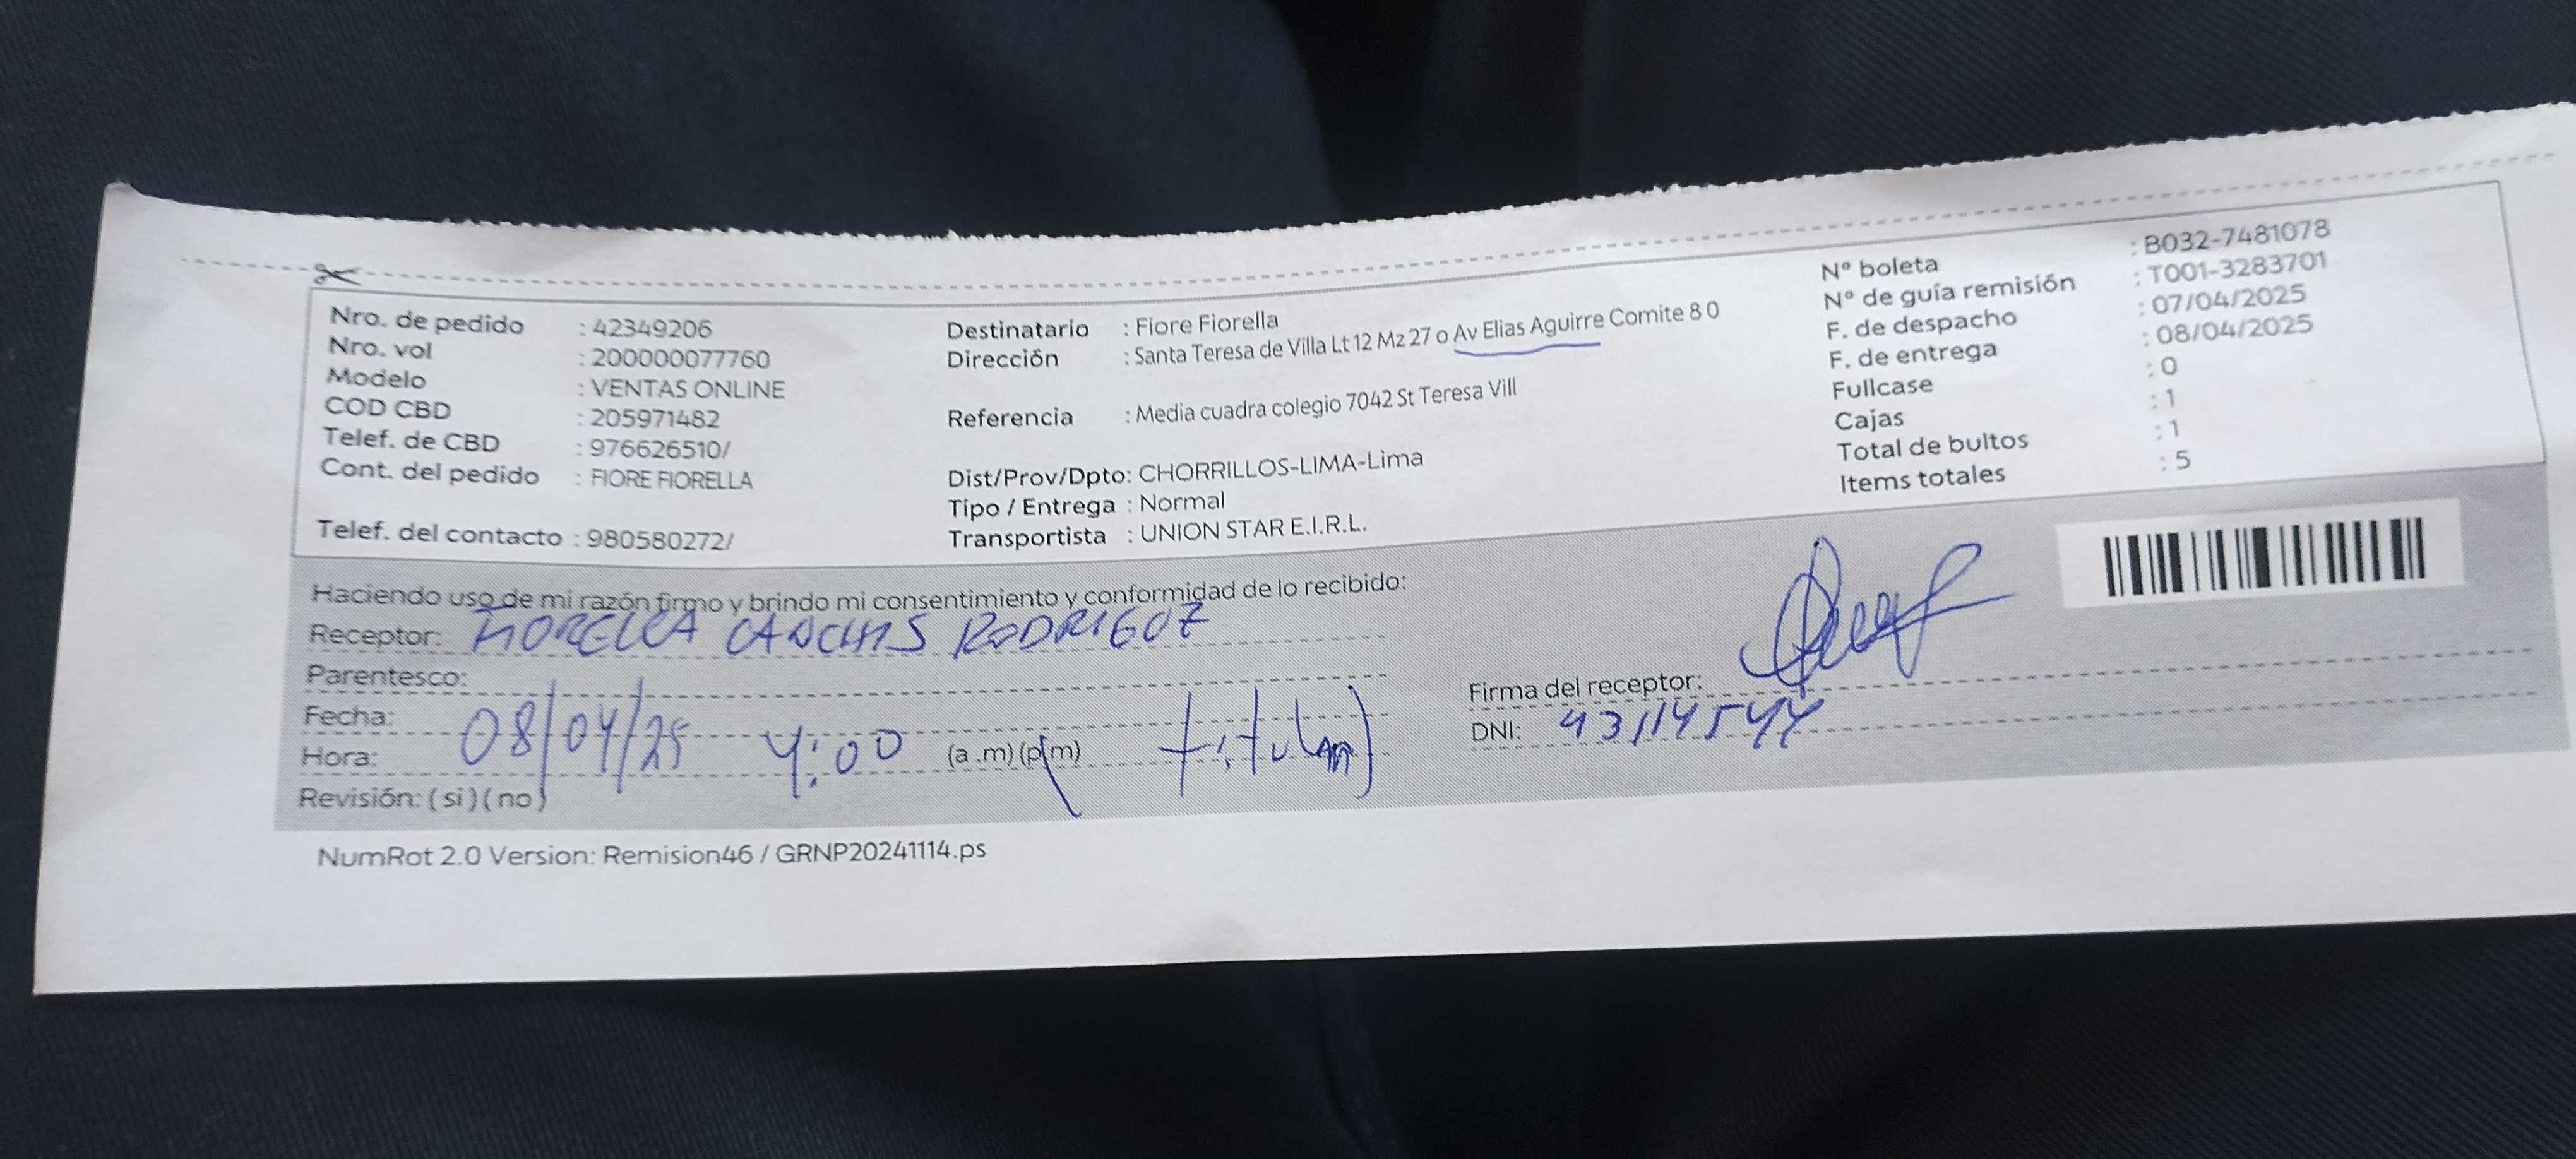 Nro. de pedido : 42349206
Nro. vol : 200000077760
Modelo : VENTAS ONLINE
COD CBD : 205971482
Telef. de CBD : 976626510/
Cont. del pedido : FIORE FIORELLA
Telef. del contacto : 980580272/
Destinatario : Fiore Fiorella
Dirección : Santa Teresa de Villa Lt 12 Mz 27 o Av Elias Aguirre Comite 8 0
Referencia : Media cuadra colegio 7042 St Teresa Vill
Dist/Prov/Dpto: CHORRILLOS-LIMA-Lima
Tipo / Entrega : Normal
Transportista : UNION STAR E.I.R.L.
N° boleta : B032-7481078
N° de guía remisión : T001-3283701
F. de despacho : 07/04/2025
F. de entrega : 08/04/2025
Fullcase : 0
Cajas : 1
Total de bultos : 1
Items totales : 5
Haciendo uso de mi razón firmo y brindo mi consentimiento y conformidad de lo recibido:
Receptor: FIORELLA CANCHIS RODRIGUZ
Parentesco:
Fecha: 08/04/25
Hora: 4:00 (a .m) (p.m) (titular)
Revisión: ( si ) ( no )
Firma del receptor:
DNI: 43114544
NumRot 2.0 Version: Remision46 / GRNP20241114.ps